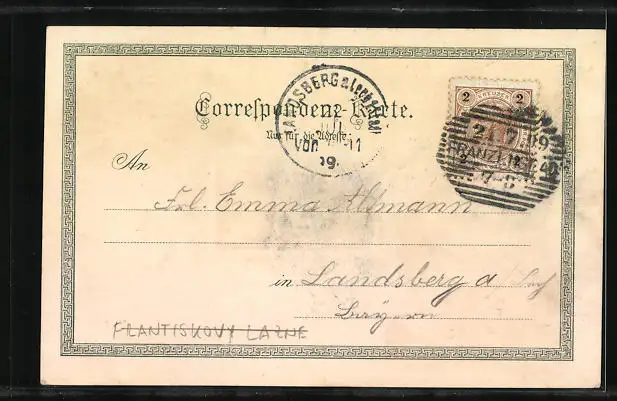 Correspondenz-Karte.
Nur für die Adresse.
LANDSBERG a Lech
Vor 11
99
2 2
2 7 9
FRANZ
7-8
An
Frl. Emma
in Landsberg a/Lech
Bayern
FRANTISKOVY LAZNE